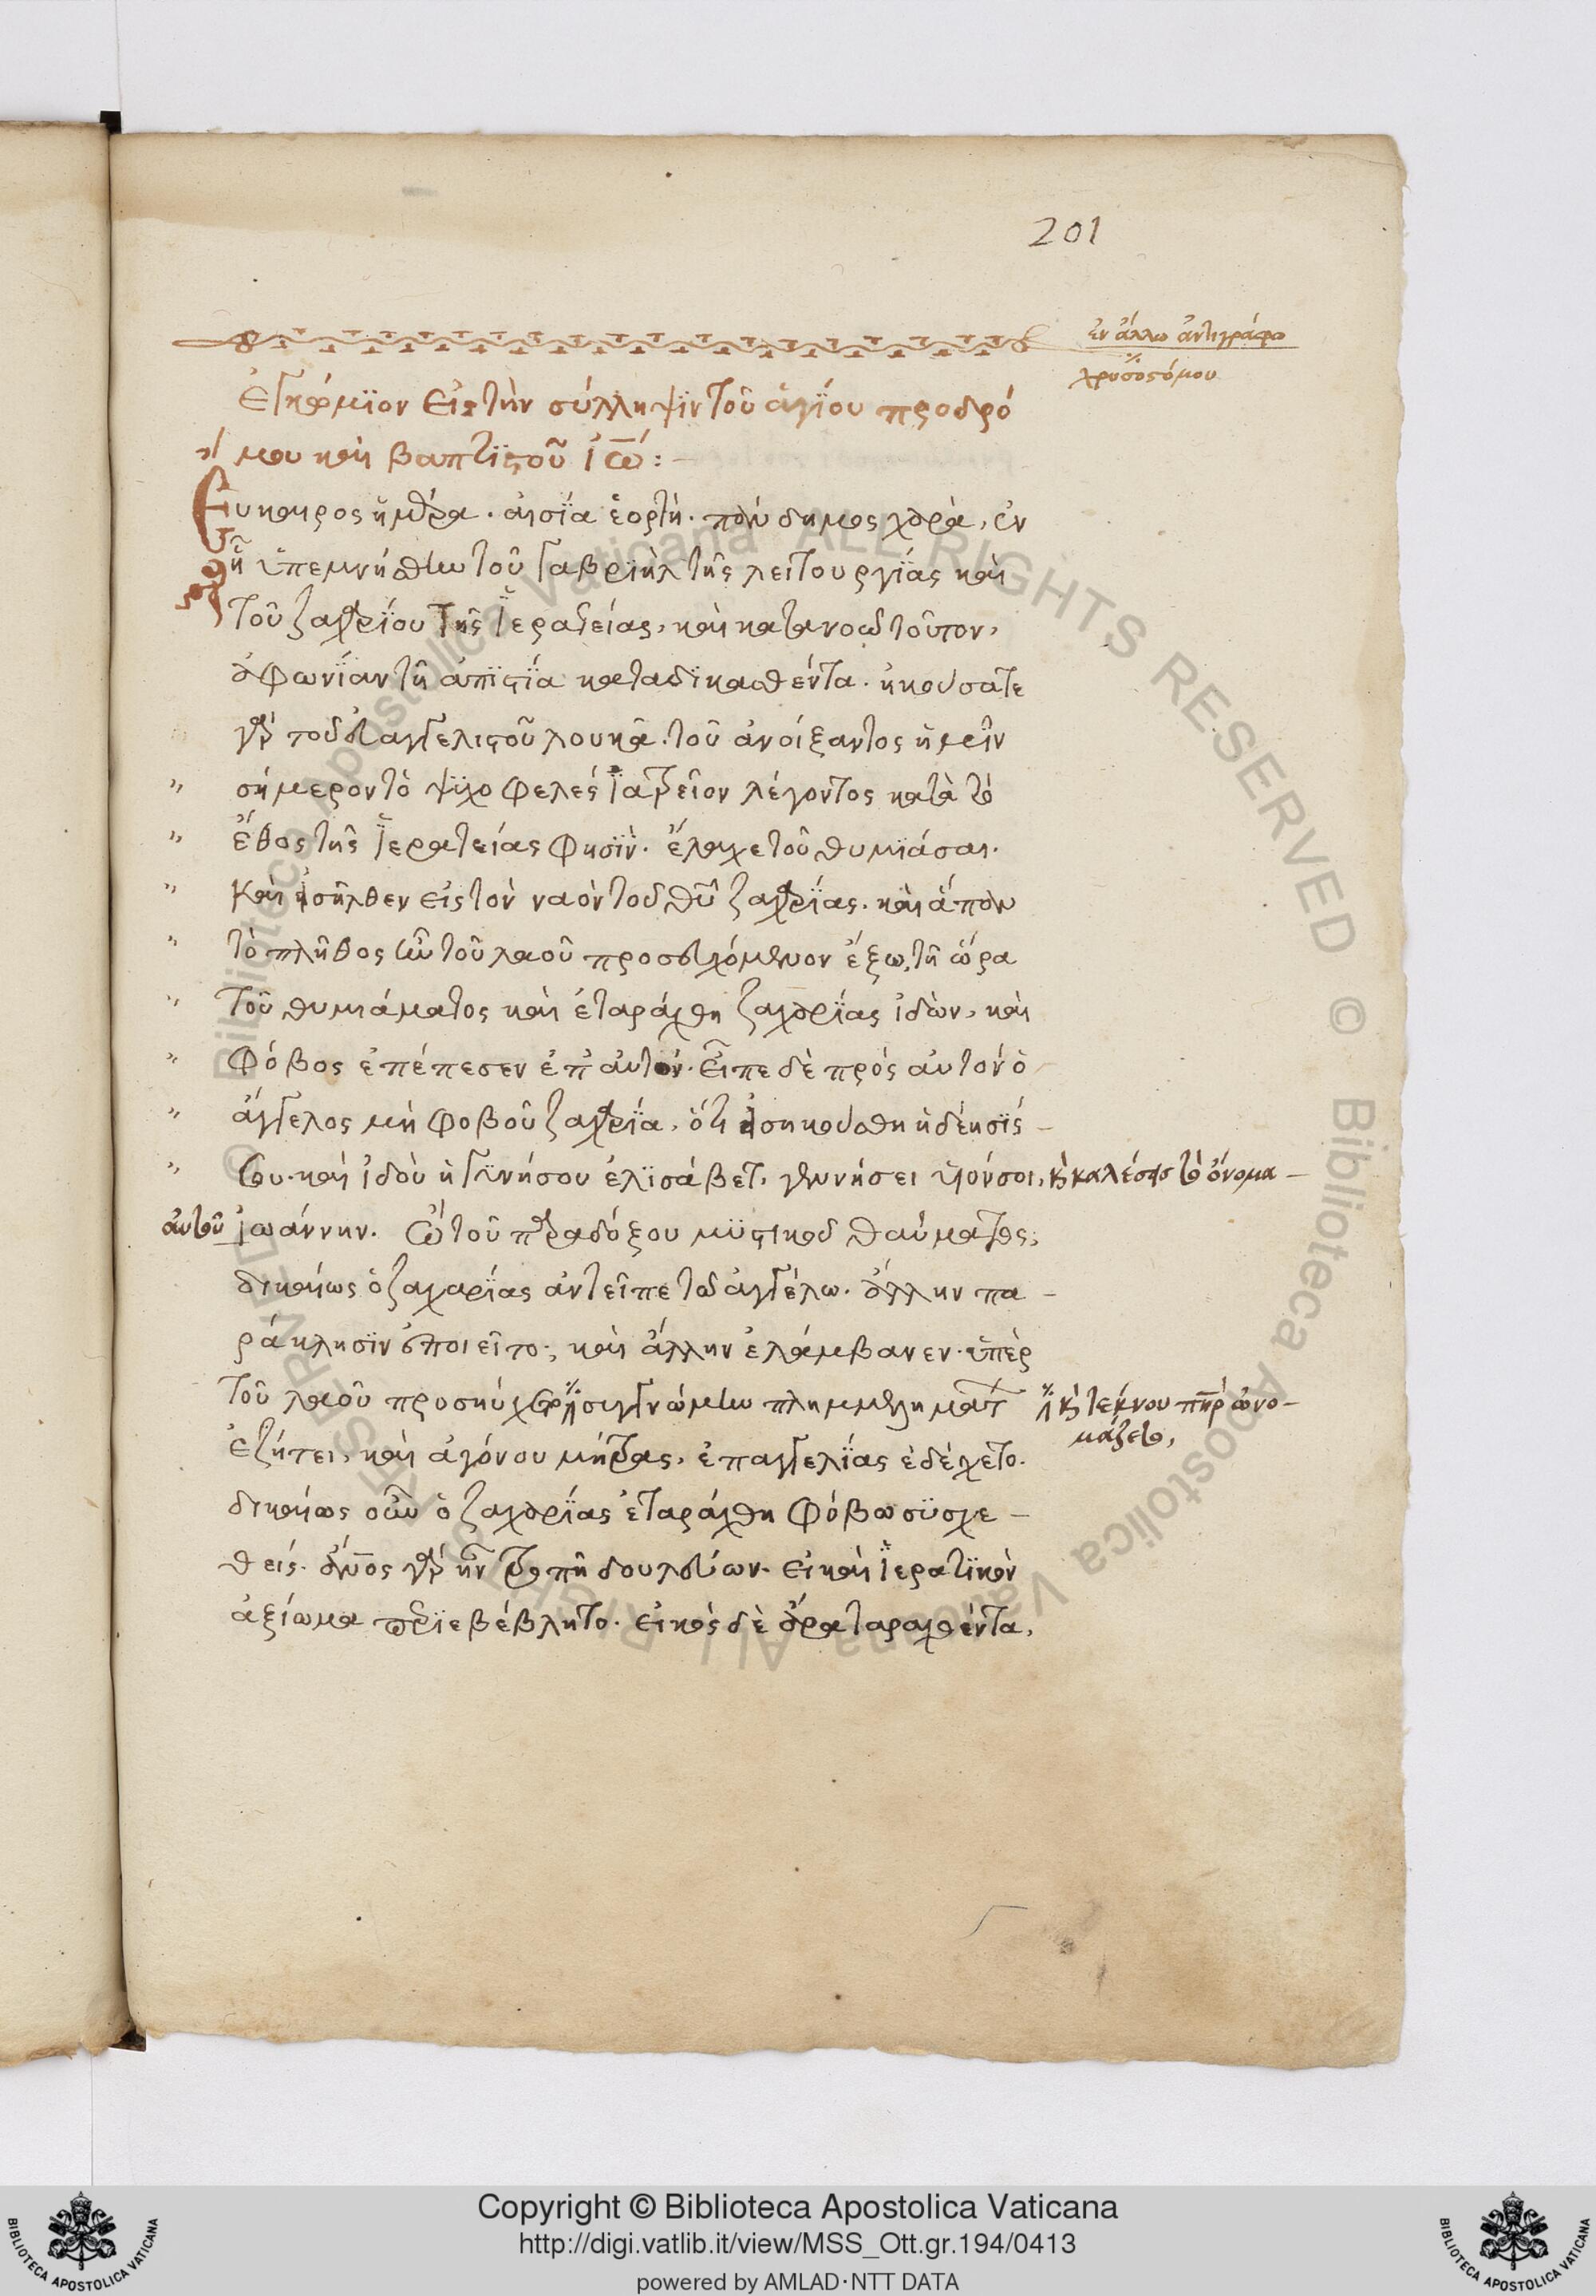 201
ἐν ἄλλω ἀντιγράφω
χρυσοστόμου
ἐγκώμϊον εἰς τὴν σύλληψϊν τοῦ ἁγΐου προδρό
μου καὶ βαπτϊστοῦ ἰω̅:
Εὔκαιρος ἡμέρα. αἰσΐα ἑορτή. πάνδημος χαρὰ, ἐν
ᾗ ὑπεμνήσθην τοῦ γαβριὴλ τῆς λειτουργΐας καὶ
τοῦ ζαχαρΐου τῆς ἱερατείας, καὶ κατανοῶ τοῦτον,
ἀφωνΐαν τῆ ἀπϊστΐα καταδϊκασθέντα. ἠκούσατε
γὰρ τοῦ εὐαγγελιστοῦ λουκᾶ. τοῦ ἀνοίξαντος ἡμεῖν
σήμερον τὸ ψϊχοφελές ἰατρεῖον λέγοντος κατὰ τὸ
ἔθος τῆς ἱερατείας φησϊν. ἔλαχε τοῦ θυμϊάσαι.
καὶ εἰσῆλθεν εἰς τὸν ναὸν τοῦ θῡ ζαχαρΐας. καὶ ἅπαν
τὸ πλῆθος ἦν τοῦ λαοῦ προσευχόμενον ἔξω, τῆ ὥρα
τοῦ θυμιάματος καὶ ἐταράχθη ζαχαρΐας ἰδὼν, καὶ
φόβος ἐπέπεσεν ἐπ' αὐτόν. εἶπε δὲ πρὸς αὐτὸν ὁ
ἄγγελος μὴ φοβοῦ ζαχαρΐα, ὅτι εἰσηκούσθη ἡ δέησΐς
σου. καὶ ἰδοὺ ἡ γϋνή σου ἐλϊσάβετ, γεννήσει υἱόν σοι, καὶ καλέσεις τὸ ὄνομα
αὐτοῦ ἰωάννην. ὢ τοῦ παραδόξου μϋστικοῦ θαύματος;
δικαίως ὁ ζαχαρΐας ἀντεῖπε τῶ ἀγγέλω. ἄλλην πα
ράκλησϊν ἐποιεῖτο; καὶ ἄλλην ἐλάμβανεν. ὑπὲρ
τοῦ λαοῦ προσηύχετο συγγνώμην πλημμελημάτ
καὶ τέκνου πη̅ρ ὠνο
μάζετο,
ἐζήτει, καὶ ἀγόνου μήτρας, ἐπαγγελΐας ἐδέχετο.
δικαίως οὖν ὁ ζαχαρΐας ἐταράχθη φόβω σϋσχε
θείς. ἄνο̅ς γὰρ ἦν τροπῆ δουλεύων. εἰ καὶ ἱερατϊκὸν
ἀξίωμα περϊεβέβλητο. εἰκὸς δὲ ἄρα ταραχθέντα,
Copyright © Biblioteca Apostolica Vaticana
http://digi.vatlib.it/view/MSS_Ott.gr.194/0413
powered by AMLAD·NTT DATA